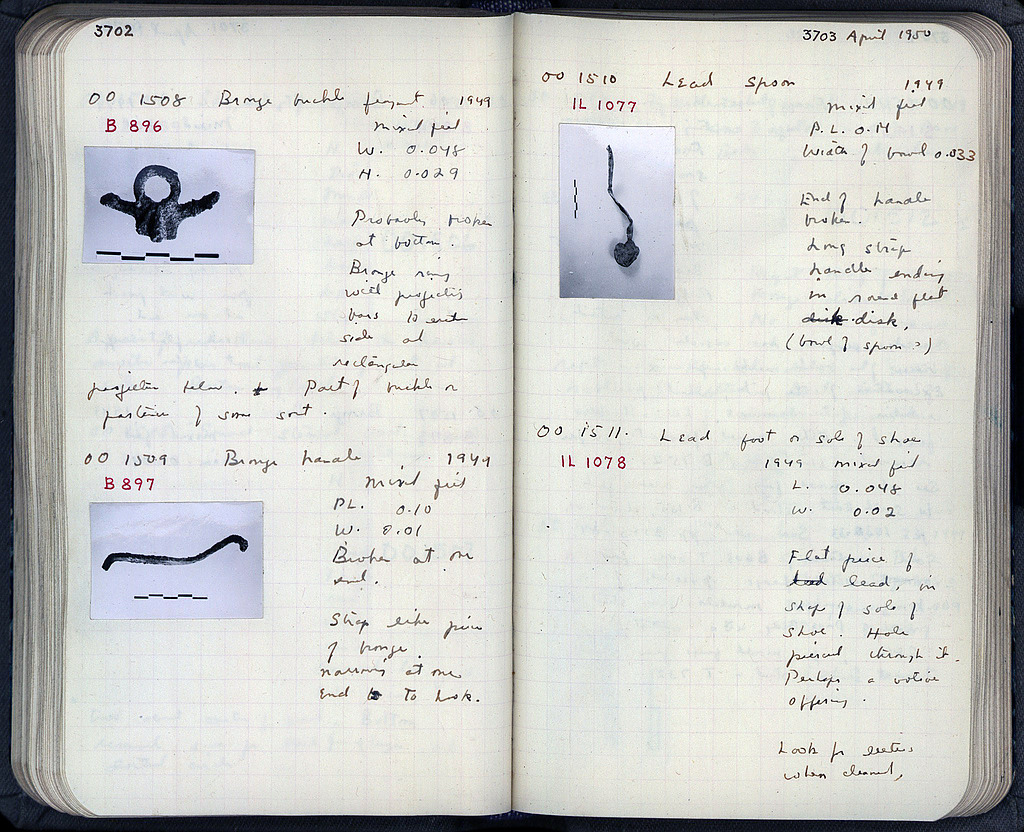 3702
OO 1508 Bronze buckle fragment 1949
B 896
mixed fill
W. 0.048
H. 0.029
Probably broken
at bottom.
Bronze ring
with projecting
bars to each
side at
rectangular
projection below. Part of buckle or
fastener of some sort.
OO 1509 Bronze handle, 1949
B 897
mixed fill
PL. 0.10
W. 0.01
Broken at one
end.
Strap like piece
of bronze.
narrowing at one
end to hook.
3703 April 1950
OO 1510 Lead spoon 1949
IL 1077
mixed fill
P.L. 0.14
Width of bowl 0.033
End of handle
broken.
Long strap
handle ending
in round flat
disk disk.
(bowl of spoon?)
OO 1511. Lead foot or sole of shoe
IL 1078
1949 mixed fill
L. 0.048
W. 0.02
Flat piece of
lead, in
shape of sole of
shoe. Hole
pierced through it.
Perhaps a votive
offering.
Look for letters
when cleaned.